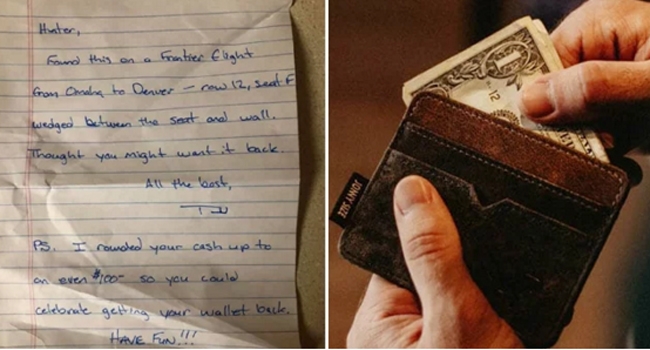 Hunter,
Found this on a Frontier flight
from Omaha to Denver – row 12, seat F
wedged between the seat and wall.
Thought you might want it back.
All the best,
PS. I rounded your cash up to
an even $100- so you could
celebrate getting your wallet back.
HAVE FUN!!!
1
12
JONNY SIZE